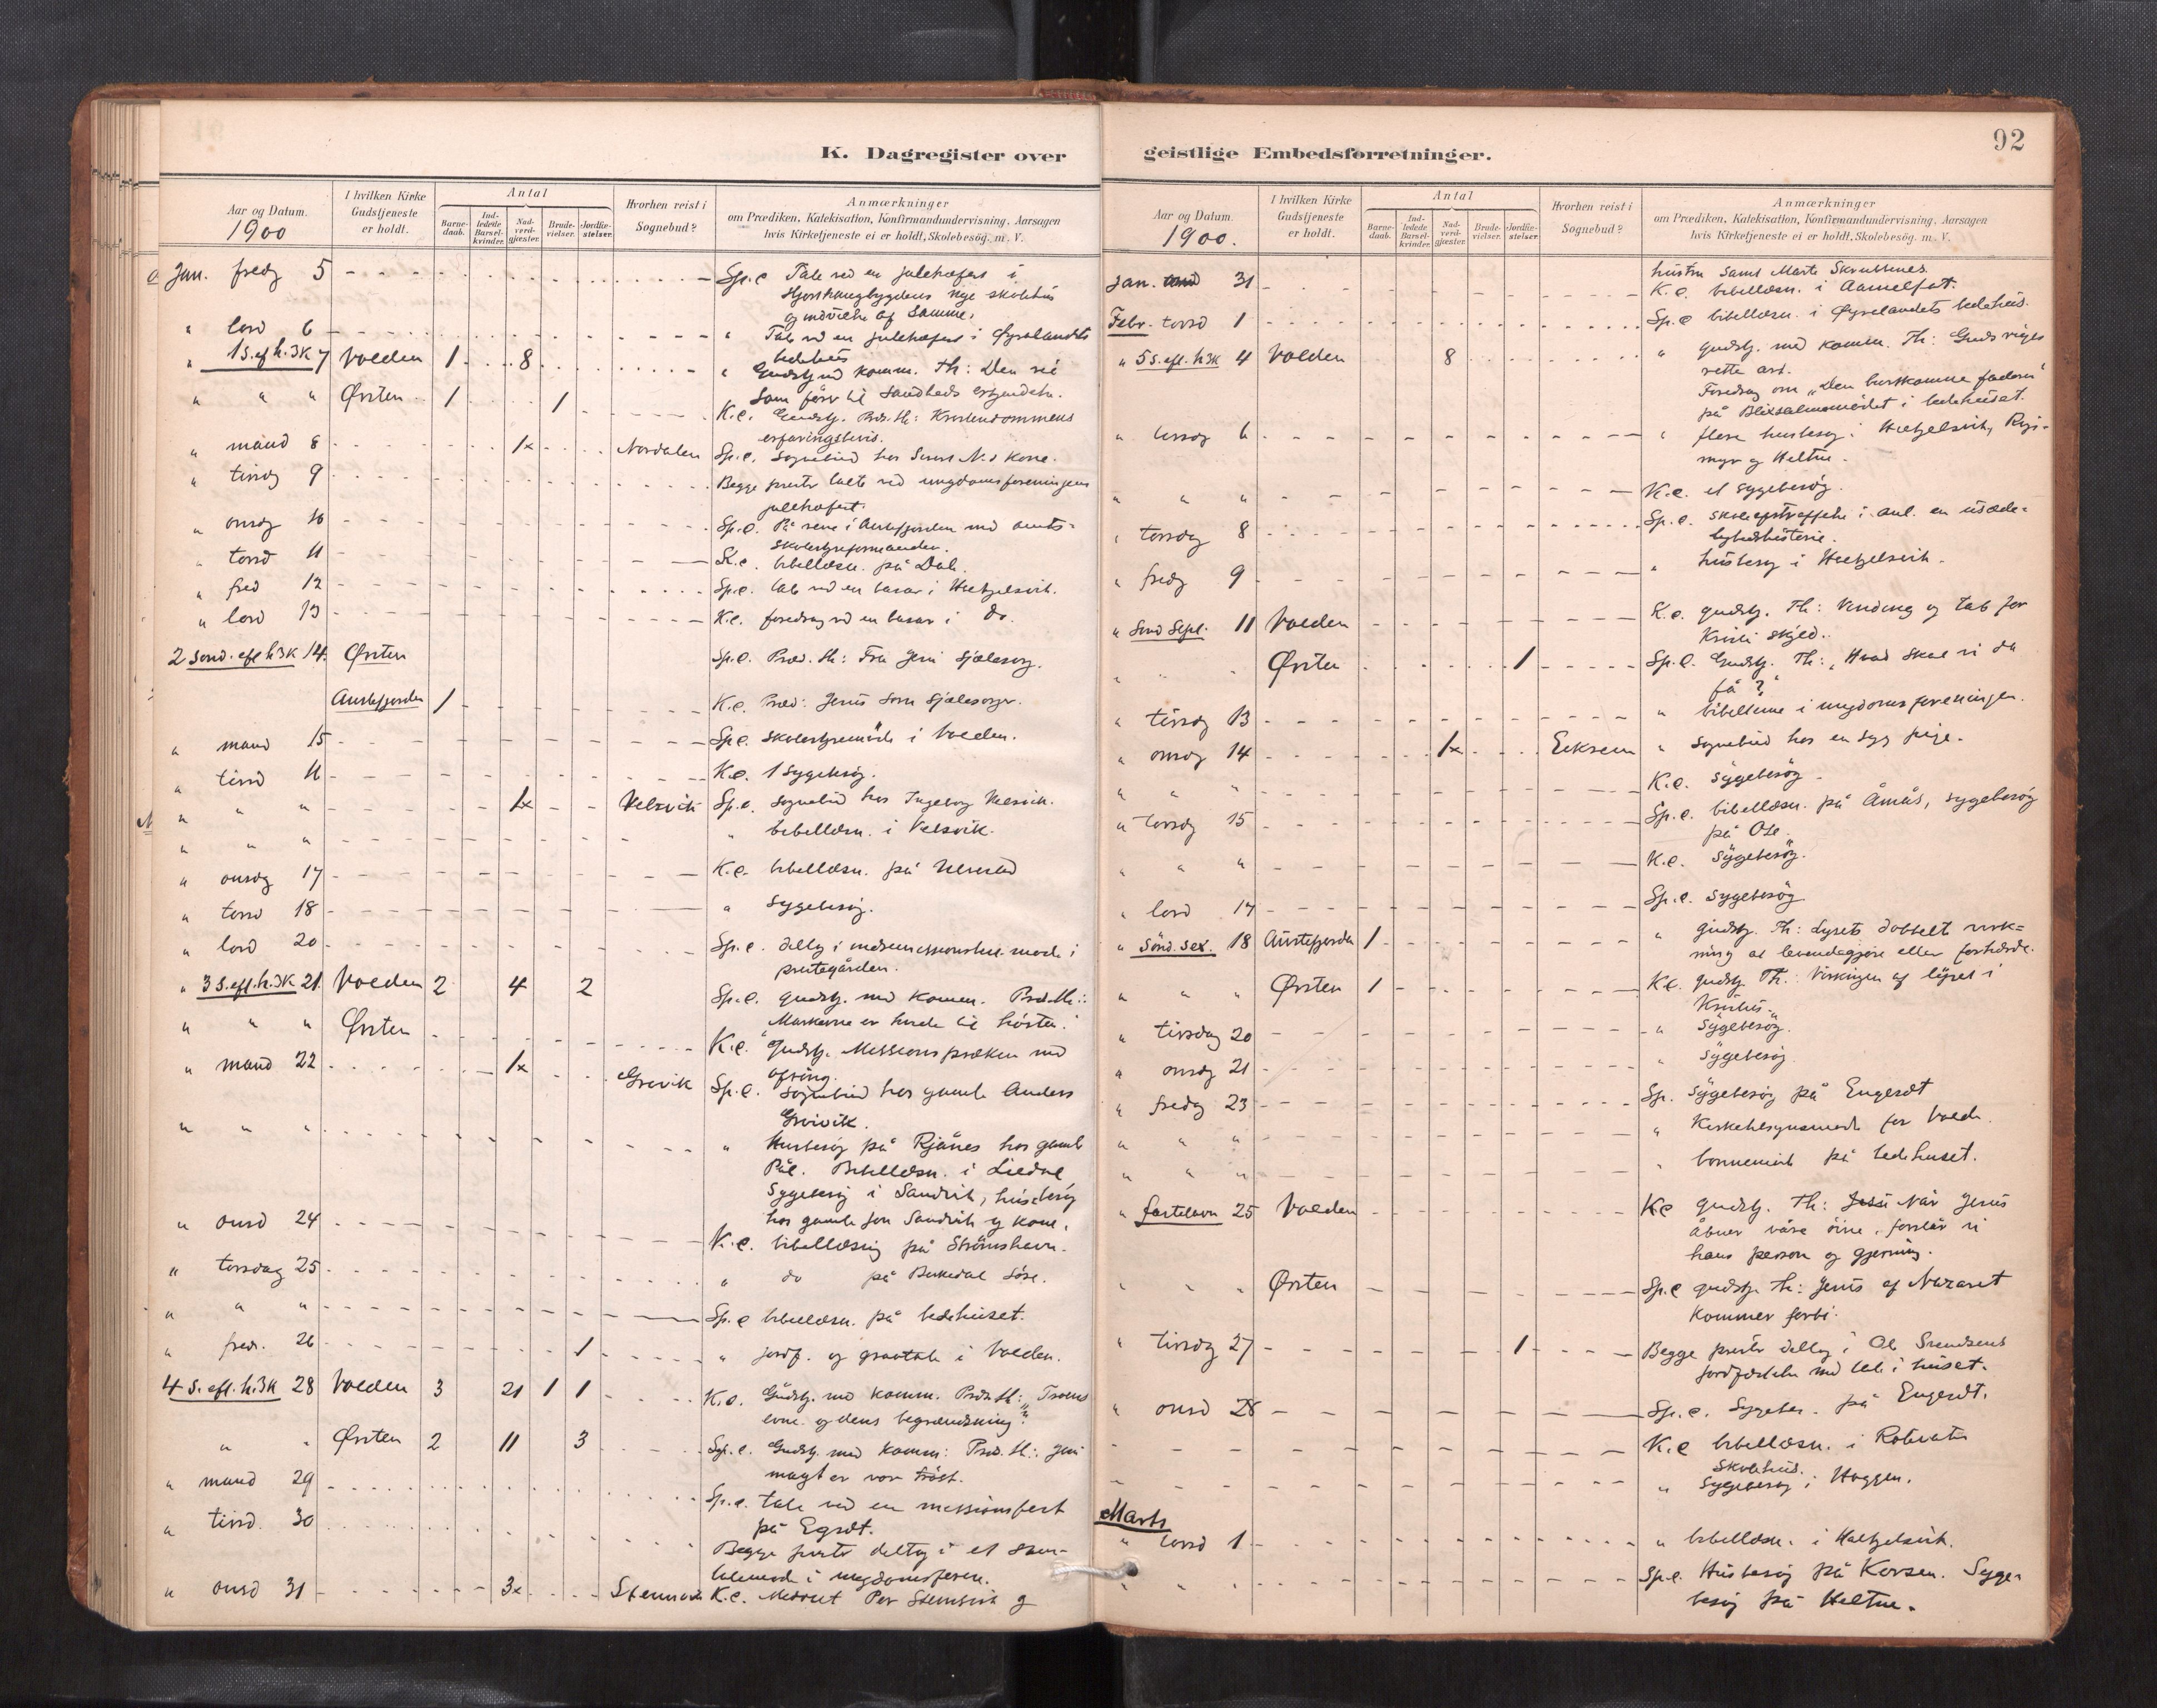 92
K. Dagregister over geistlige Embedsforretninger.
Aar og Datum. 1900
I hvilken Kirke Gudstjeneste er holdt.
Antal
Barne-daab.
Ind-ledede Barsel-kvinder.
Nad-verd-gjæster.
Brude-vielser.
Jordfæ-stelser.
Hvorhen reist i Sognebud?
Anmærkninger
om Prædiken, Katekisation, Konfirmandundervisning, Aarsagen
hvis Kirketjeneste ei er holdt, Skolebesög. m. V.
Jan. fredg 5 Sp.e Tale ved en julehøfest i
skolehus
og indvielse af samme.
" lørd 6 " Tale ved en julehøfest i Øyralandets
bedehus
" 1 S. ef h.3K 7 Volden 1 8 " Gudstj. med komm. Th: Den vei
som fører til Sandheds erkjendelse.
" " " Ørsten 1 1 K.e. Gudstj. Præd. th: Kristendommens
erfaringsbevis.
" mand 8 1x Nordalen Sp.e. Sognebud hos N.s kone.
" tirsdg 9 Begge prester talte ved ungdomsforeningens
julehøfest.
" onsdg 10 Sp.e. På reise i Austefjorden med amts-
skolestyreformanden.
" torsd 11 K.e. bibellæsn. på Dale.
" fred 12 Sp.e. tale ved en basar i
" lørd 13 K.e. foredrag ved en basar i do.
2 Sønd. eft h3K 14. Ørsten Sp.e. Præd. th: Fra Jesu sjælesorg.
Austefjorden 1 K.e. Præd: Jesus som sjælesørger.
" mand 15 Sp.e. skolestyremöde i Volden.
" tirsd 16 K.e. 1 Sygebesög.
" " " 1x Velsvik Sp.e. Sognebud hos Ingeborg Velsvik.
" " " " bibellæsn. i Velsvik.
" onsdg 17 K.e. bibellæsn. på Ulvestad
" torsd 18 " Sygebesög.
" lørd 20 Sp.e. deltog i möde i
prestegården.
" 3 S. eft. h.3K 21. Volden 2 4 2 Sp.e. gudstj. med komm. Præd.th.:
Markerne er hvide til hösten.
" " " Ørsten K.e. Gudstj. Missionspræken med
ofring.
" mand 22 1x Grevik Sp.e. Sognebud hos gamle Anders
" " " " Husbesög på Rjånes hos gamle
Pål. Bibellæsn. i Liedal
Sygebesög i Sandvik, husbesög
hos gamle Jon Sandvik og kone.
" onsd 24 K.e. bibellæsnig på Strömshavn.
" torsdag 25 " do på Birkedal
" " " Sp.e bibellæsn. på bedehuset.
" fred. 26 1 " jordf. og gravtale i Volden.
4 S. eft. h.3K 28 Volden 3 21 1 1 K.e. Gudstj. med komm. Præd.th: "Troens
evne og dens begrændsning".
" " Ørsten 2 11 3 Sp.e. Gudstj. med komm: Præd. th: Jesu
magt er vor tröst.
" mand 29 Sp.e. tale ved en missionsfest
på Egset.
" tirsd. 30 Begge prester deltog i et
i ungdomsforen.
" onsd 31 3x K.e. Per og
Aar og Datum. 1900.
I hvilken Kirke Gudstjeneste er holdt.
Antal
Barne-daab.
Ind-ledede Barsel-kvinder.
Nad-verd-gjæster.
Brude-vielser.
Jordfæ-stelser.
Hvorhen reist i Sognebud?
Anmærkninger
om Prædiken, Katekisation, Konfirmandundervisning, Aarsagen
hvis Kirketjeneste ei er holdt, Skolebesög. m. V.
hustru samt Marte
Jan. 31 K.e. bibellæsn. i Aamelfot.
Febr. torsd 1 Sp.e bibellæsn. i Øyralandets bedehus.
" 5 S. eft. h3K 4 Volden 8 " gudstj. med komm. Th: Guds riges
rette art.
Foredrag om "Den bortkomne faderen"
på i bedehuset.
" tirsdg 6 " flere husbesög i
myr og Heltne.
" " " K.e. et sygebesög.
" torsdag 8 Sp.e. i anl. en usæde-
lighedshistorie.
" fredg 9 " husbesög i
" Sønd Sept. 11 Volden K.e. gudstj. Th: Vinding og tab for
Kristi skyld.
" " " Ørsten 1 Sp.e. Gudstj. Th: "Hvad skal vi da
få?"
" tirsdg 13 " bibeltime i ungdomsforeningen.
" onsdg 14 1x Eiksem " Sognebud hos en syg pige.
" " " K.e. Sygebesög
" torsdg 15 Sp.e. bibellæsn. på Åmås, sygebesög
på Ose.
" " " K.e. Sygebesög.
" lørd 17 Sp.e. Sygebesög
" Sønd. Sex. 18 Austefjorden 1 " gudstj. Th: Lysets dobbelt virk=
ning at levendegjøre eller forhærde.
" " " Ørsten 1 K.e. gudstj. Th: Virkningen af lyset i
Kristus.
" tirsdag 20 " Sygebesög.
" onsdg 21 " Sygebesög.
" fredg 23 Sp. Sygebesög på Engeset
" " " " for Volden.
" " " " bönnemöde på bedehuset.
" fastelavn 25 Volden K.e gudstj. Th: Når Jesus
åbner våre öine, forstår vi
hans person og gjerning.
" " " Ørsten Sp.e gudstj. th: Jesus af Nazaret
kommer forbi.
" tirsdg 27 1 Begge prester deltog i Ol. Svendsens
jordfæstelse med tale i huset.
" onsd 28 Sp.e. Sygebes. på Engeset.
K.e bibellæsn. i
Skolehus.
" Sygebesög i Haggen.
Marts
" torsd 1 " bibellæsn. i
" " " Sp.e. Husbesög på Korsen. Syge-
besög på Heltne.